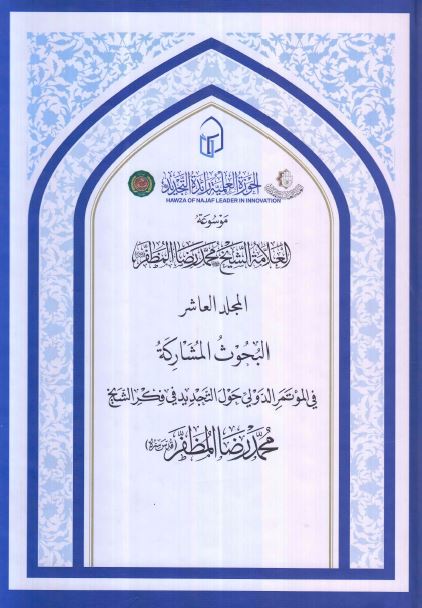 الحوزة العلمية رائدة التجديد
HAWZA OF NAJAF LEADER IN INNOVATION
مَوْسُوعَةُ
العَلّامَة الشَّيْخ مُحَمَّد رِضَا المُظَفَّر
المجلد العاشر
البُحُوثُ المُشَارِكَةُ
في المؤتَمَرِ الدَوليّ حَولَ التَّجديدِ في فِكرِ الشيخ
مُحَمَّد رِضَا المُظَفَّر (قُدِّسَ سِرُّهُ)